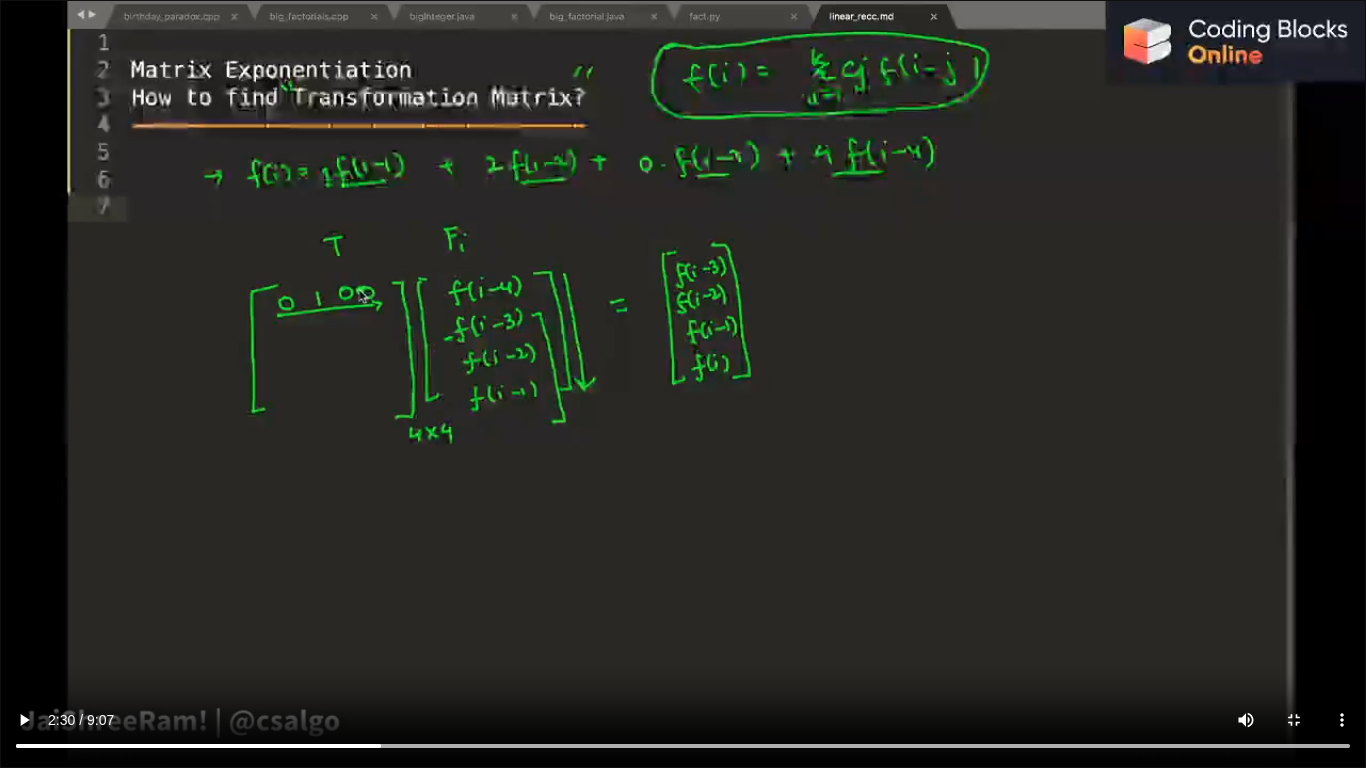 birthday_paradox.cpp × big_factorials.cpp × bigInteger.java × big_factorial.java × fact.py × linear_recc.md ×
Coding Blocks
Online
1
2 Matrix Exponentiation
3 How to find Transformation Matrix?
4
5
6
7
f(i) = k Σ j=1 cj f(i-j)
→ f(i) = 1f(i-1) + 2f(i-2) + 0.f(i-3) + 4 f(i-4)
T Fi
0 1 0 0
f(i-4)
f(i-3)
f(i-2)
f(i-1)
=
f(i-3)
f(i-2)
f(i-1)
f(i)
4x4
JaiShreeRam! | @csalgo
2:30 / 9:07